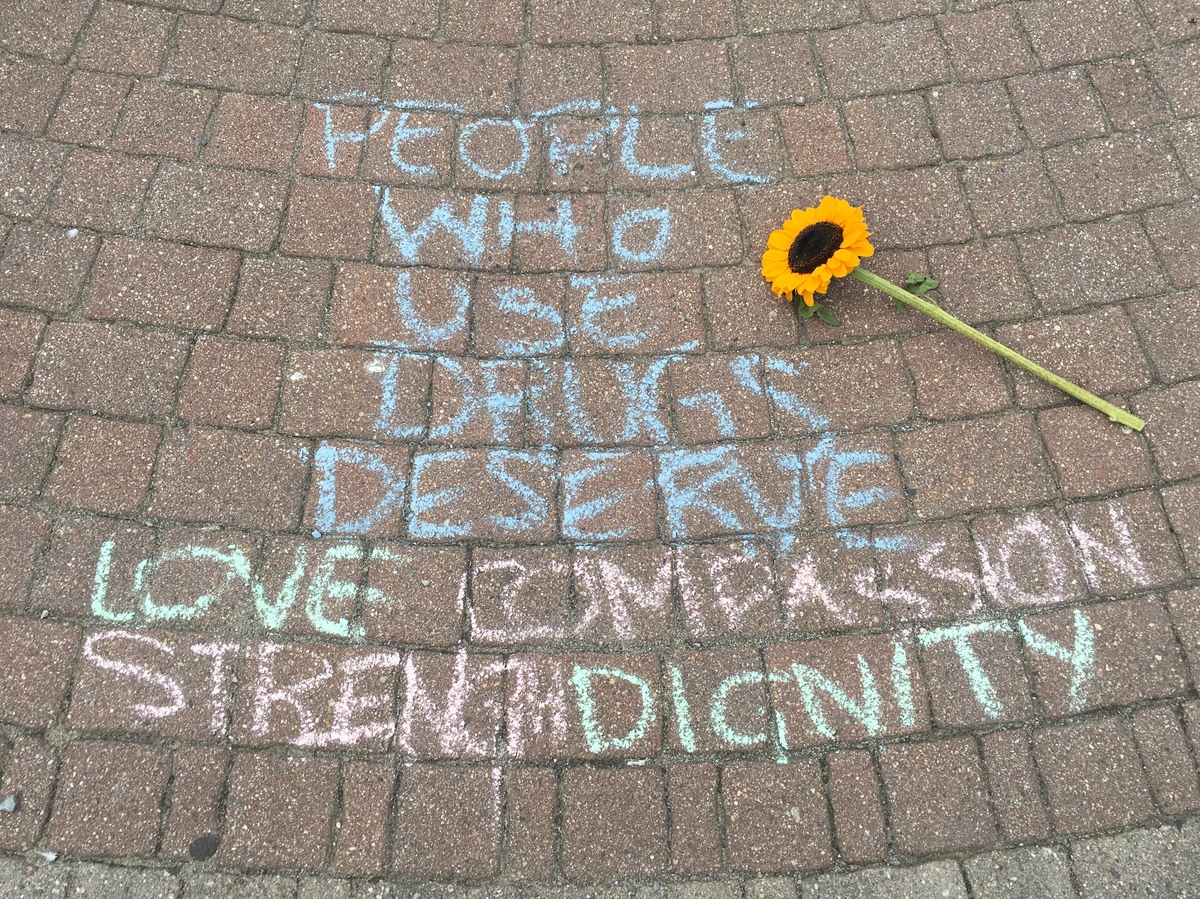 PEOPLE
WHO
USE
DRUGS
DESERVE
LOVE COMPASSION
STRENGTH DIGNITY